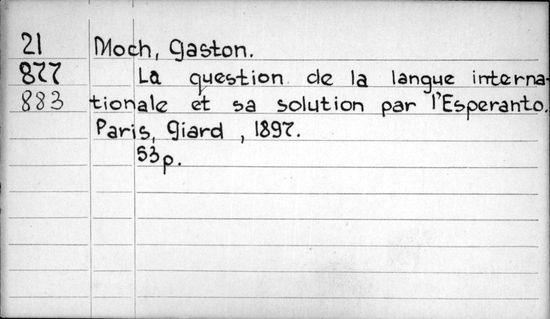 21 Moch, Gaston.
877 La question de la langue interna-
883 tionale et sa solution par l'Esperanto.
Paris, Giard, 1897.
53p.